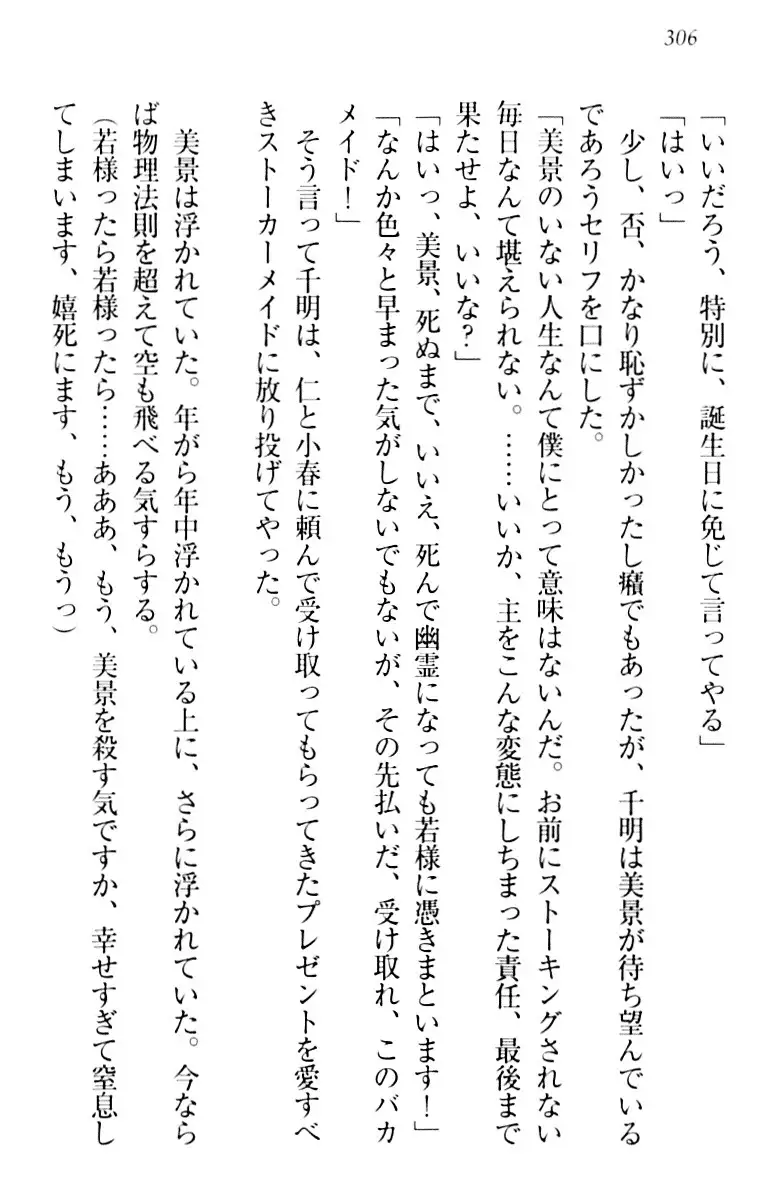 306
「いいだろう、特別に、誕生日に免じて言ってやる」
「はいっ」
少し、否、かなり恥ずかしかったし癪でもあったが、千明は美景が待ち望んでいる
であろうセリフを口にした。
「美景のいない人生なんて僕にとって意味はないんだ。お前にストーキングされない
毎日なんて堪えられない。……いいか、主をこんな変態にしちまった責任、最後まで
果たせよ、いいな？」
「はいっ、美景、死ぬまで、いいえ、死んで幽霊になっても若様に憑きまといます！」
「なんか色々と早まった気がしないでもないが、その先払いだ、受け取れ、このバカ
メイド！」
そう言って千明は、仁と小春に頼んで受け取ってもらってきたプレゼントを愛すべ
きストーカーメイドに放り投げてやった。
美景は浮かれていた。年がら年中浮かれている上に、さらに浮かれていた。今なら
ば物理法則を超えて空も飛べる気すらする。
（若様ったら若様ったら……あああ、もう、美景を殺す気ですか、幸せすぎて窒息し
てしまいます、嬉死にます、もう、もうっ）